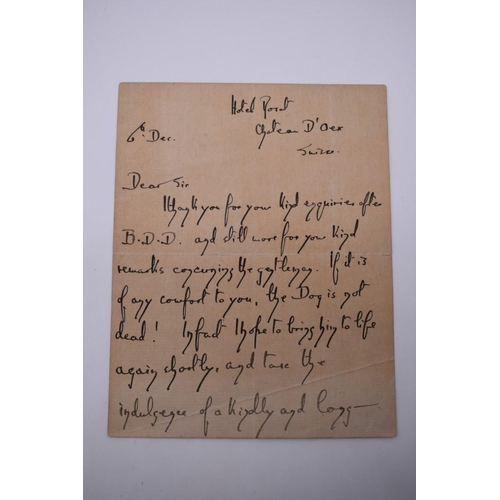 Hotel Rosat
Chateau D'Oex
6th Dec.
Suisse.
Dear Sir
Thank you for your kind enquiries after
B.D.D. and still more for your kind
remarks concerning the gentleman. If it is
of any comfort to you, the Dog is not
dead! In fact I hope to bring him to life
again shortly, and take the
indulgence of a kindly and long-